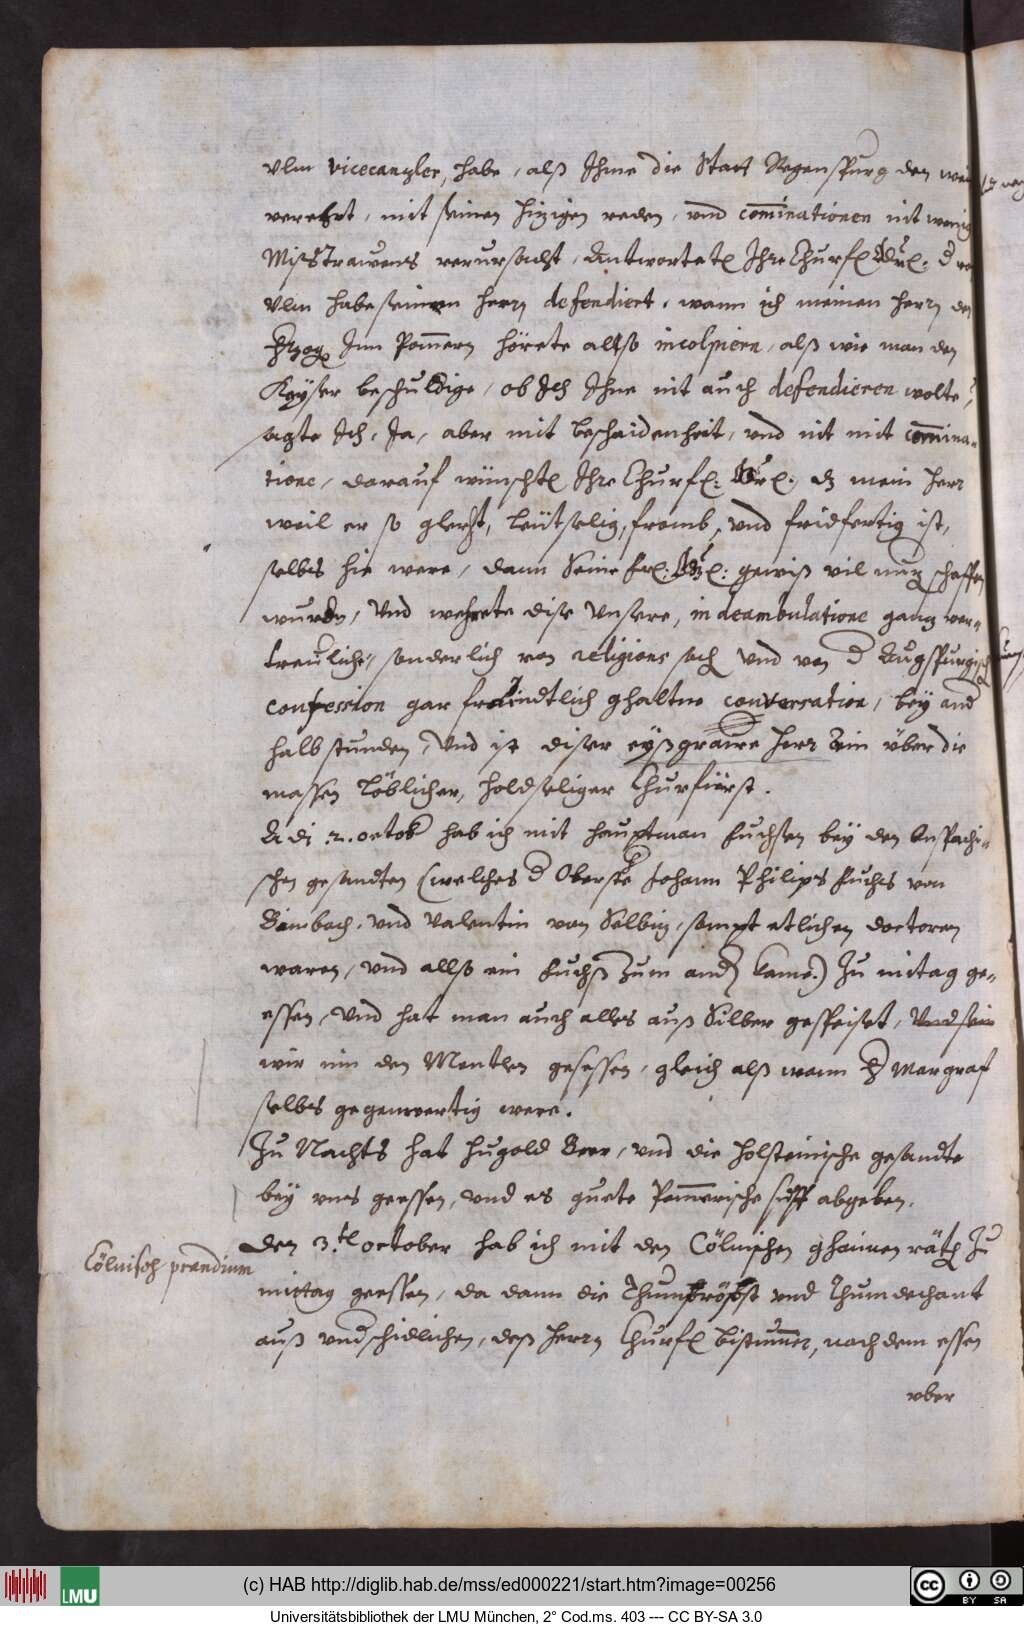 Ulm vicecanzler, habe, alß Ihme die Statt Regenspurg den wein
verehrt, mit seinen hizigen reden, und com̄inationen nit wenig
Mißtrawens verursacht, Antwortete Ihr Churf. Dr.: d von
Ulm habe seinen herrn defendiert. wann ich meinen herrn den
Herzog Inn Pom̄ern hörete allso incolpiern, alß wie man den
Kayser beschuldige, ob Ich Ihne nit auch defendieren wolte?
sagte Ich, Ja, aber mit beschaidenheit, und nit mit com̄ina-
tione, darauf wünschte Ihr Churf: Dr: dz mein herr
weil er so glerht, leutselig, fromb, und fridfertig ist,
selbs hie were, dann Seine fr: Dr: gewiß vil nuz schaffen
wurden, Und wehrete dise Unsere, in deambulatione ganz ver-
treuliche, sonderlich von religions sach und von d Augspurgisch
confession gar freündtlich ghaltne conversation, bey and
halb stunden, Und ist diser eyßgrawe herr ein über die
massen löblicher, holdseliger Churfürst.
Adi .2. octob hab ich mit hauptman Fuchsen bey den Anspachi-
schen gesandten (welches d Oberste Johann Philips Fuchs von
Bimbach, und Valentin von Selbiz, sampt etlichen doctoren
waren, und allso ein Fuchß zum andn kame.) Zu mitag ge-
essen, Und hat man auch alles auß Silber gespeiset, Und sein
wir inn den Mentlen gesessen, gleich alß wann H Margraf
selbs gegenwertig were.
Zu Nachts hat Hugold Beer, und die holsteinische gesandte
bey uns geessen, und es guete Pom̄erische süff abgeben.
Den 3.t october hab ich mit den Cölnischen ghaimen räthen Zu
Cölnisch prandium
mittag geessen, da dann die Thumbröpst und Thumdechant
auß undschidlichen, deß herrn Churf bistummer, nach dem essen
uber
(c) HAB http://diglib.hab.de/mss/ed000221/start.htm?image=00256
LMU
BY SA
Universitätsbibliothek der LMU München, 2° Cod.ms. 403 --- CC BY-SA 3.0